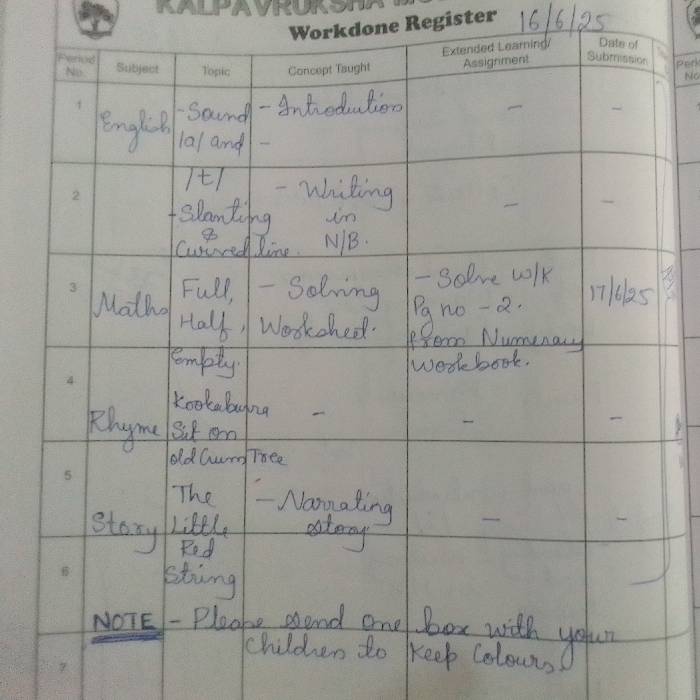 KALPAVRUKSHA
Workdone Register 16/6/25
Period No. Subject Topic Concept Taught Extended Learning/ Assignment Date of Submission
1 English - Sound - Introduction - -
/a/ and -
2 /t/ - Writing - -
- Slanting in
& N/B.
Curved line.
3 Maths Full, - Solving - Solve w/k 17/6/25
Half, Worksheet. Pg no - 2.
Empty. from Numeracy
Workbook.
4 Rhyme Kookaburra - - -
Sit on
old Gum Tree
5 Story The - Narrating - -
Little story
Red
String
6
NOTE - Please send one box with your
children to keep colours.
7